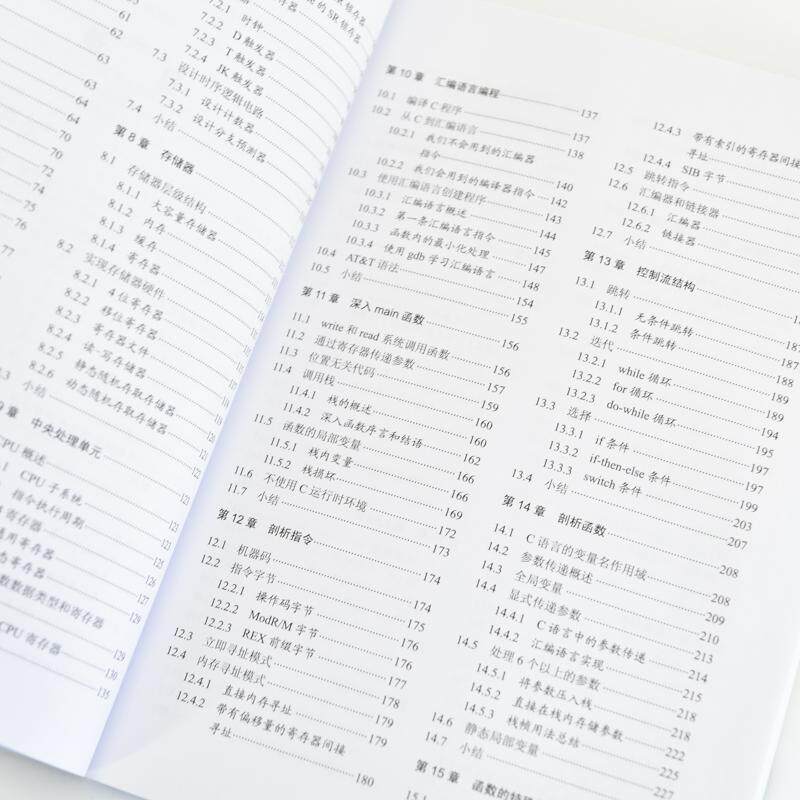 61
62
63
63
64
64
70
70
72
74
75
76
77
7.2.1 时钟
7.2.2 D 触发器
7.2.3 T 触发器
7.2.4 JK 触发器
7.3 设计时序逻辑电路
7.3.1 设计计数器
7.3.2 设计分支预测器
7.4 小结
第 8 章 存储器
8.1 存储器层级结构
8.1.1 大容量存储器
8.1.2 内存
8.1.3 缓存
8.1.4 寄存器
8.2 实现存储器硬件
8.2.1 4 位寄存器
8.2.2 移位寄存器
8.2.3 寄存器文件
8.2.4 读-写存储器
8.2.5 静态随机存取存储器
8.2.6 动态随机存取存储器
小结
章 中央处理单元
CPU 概述
CPU 子系统
指令执行周期
寄存器
数据类型和寄存器
CPU 寄存器 135
第 10 章 汇编语言编程 137
10.1 编译 C 程序 137
10.2 从 C 到汇编语言 138
10.2.1 我们不会用到的汇编器
指令 140
10.2.2 我们会用到的编译器指令 142
10.3 使用汇编语言创建程序 143
10.3.1 汇编语言概述 144
10.3.2 第一条汇编语言指令 145
10.3.3 函数内的最小化处理 147
10.3.4 使用 gdb 学习汇编语言 148
10.4 AT&T 语法 154
10.5 小结 155
第 11 章 深入 main 函数 156
11.1 write 和 read 系统调用函数 156
11.2 通过寄存器传递参数 157
11.3 位置无关代码 159
11.4 调用栈 160
11.4.1 栈的概述 160
11.4.2 深入函数序言和结语 162
11.5 函数的局部变量 166
11.5.1 栈内变量 166
11.5.2 栈损坏 169
11.6 不使用 C 运行时环境 172
11.7 小结 173
第 12 章 剖析指令 174
12.1 机器码 174
12.2 指令字节 175
12.2.1 操作码字节 176
12.2.2 ModR/M 字节 176
12.2.3 REX 前缀字节 177
12.3 立即寻址模式 178
12.4 内存寻址模式 179
12.4.1 直接内存寻址 179
12.4.2 带有偏移量的寄存器间接
寻址 180
12.4.3 带有索引的寄存器间接
寻址
12.4.4 SIB 字节
12.5 跳转指令
12.6 汇编器和链接器
12.6.1 汇编器
12.6.2 链接器
12.7 小结
第 13 章 控制流结构
13.1 跳转
13.1.1 无条件跳转 187
13.1.2 条件跳转 187
13.2 迭代 188
13.2.1 while 循环 189
13.2.2 for 循环 189
13.2.3 do-while 循环 194
13.3 选择 195
13.3.1 if 条件 197
13.3.2 if-then-else 条件 197
13.3.3 switch 条件 199
13.4 小结 203
第 14 章 剖析函数 207
14.1 C 语言的变量名作用域 208
14.2 参数传递概述 208
14.3 全局变量 209
14.4 显式传递参数 210
14.4.1 C 语言中的参数传递 213
14.4.2 汇编语言实现 214
14.5 处理 6 个以上的参数 215
14.5.1 将参数压入栈 218
14.5.2 直接在栈内存储参数 218
14.5.3 栈帧用法总结 222
14.6 静态局部变量 225
14.7 小结 227
第 15 章 函数的特殊
15.1